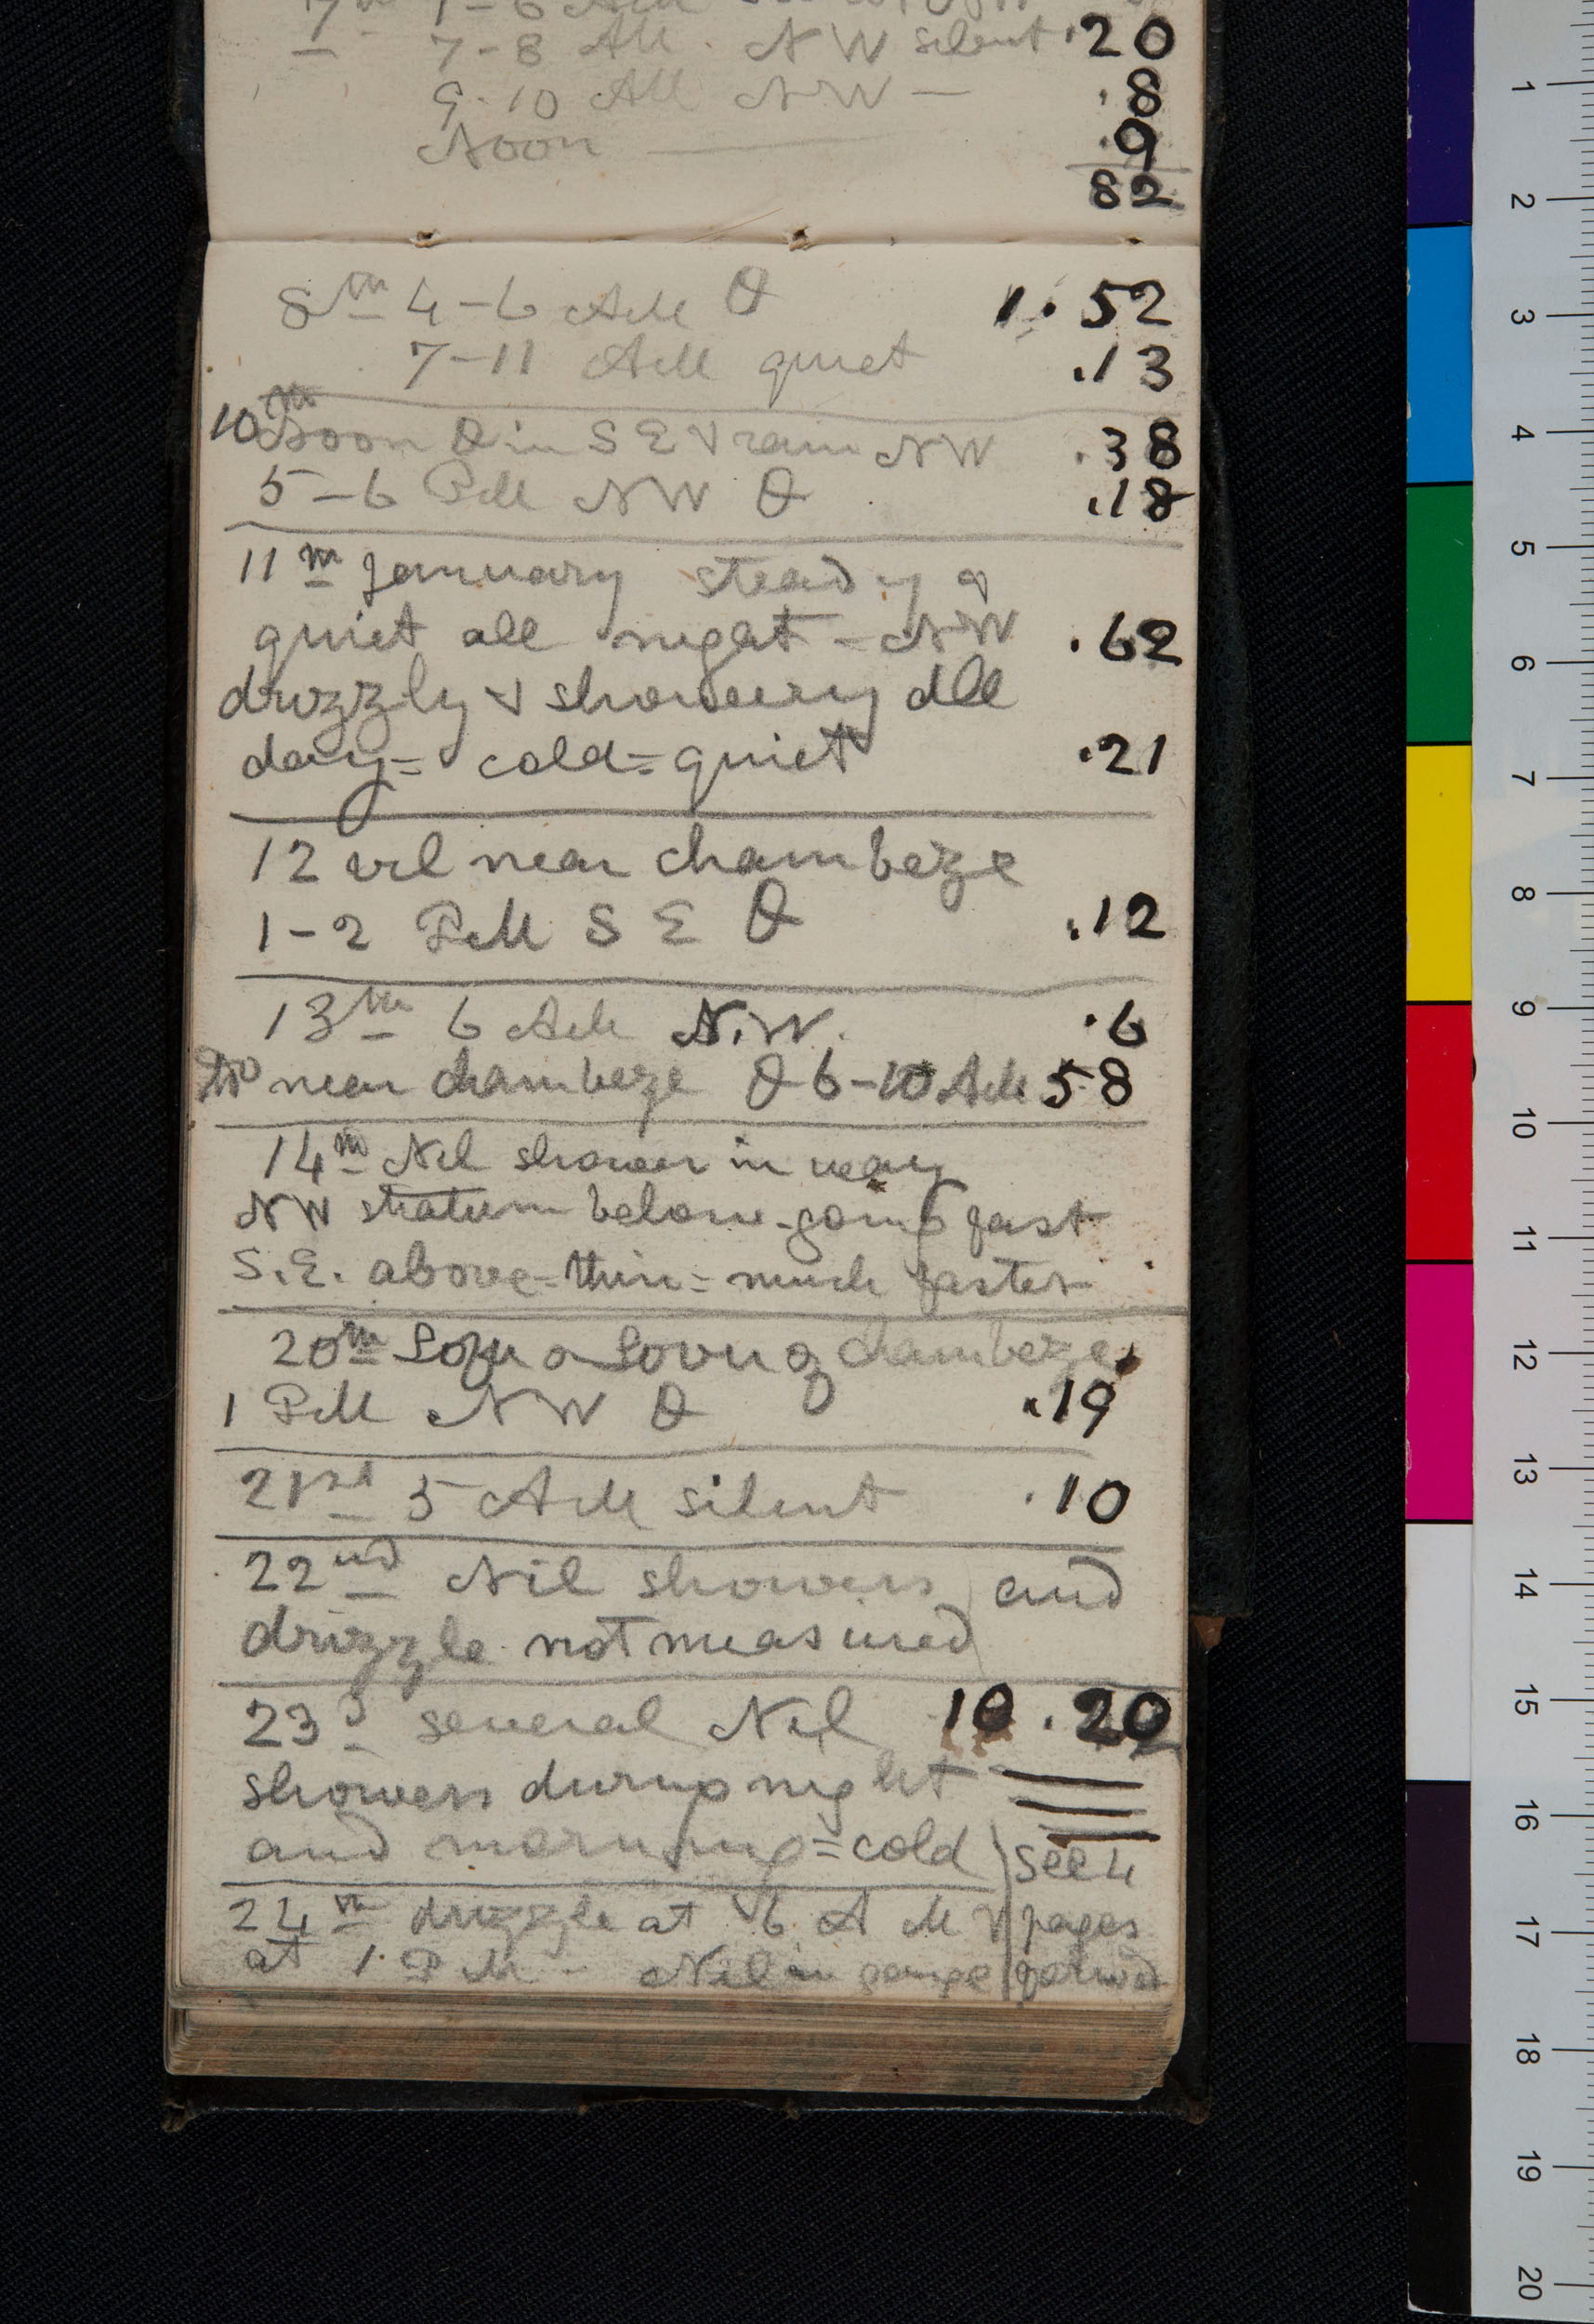 7-8 AM. NW silent .20
9-10 AM NW — .8
Noon — .9
82
8th 4-6 AM θ 1.52
7-11 AM quiet .13
10th Noon θ in SE & rain NW .38
5-6 PM NW θ .18
11th January steady &
quiet all night - NW .62
drizzly & showery all
day = cold = quiet .21
12 vil near Chambeze
1-2 PM SE θ .12
13th 6 AM N.W. .6
Do near Chambeze θ 6-10 AM 58
14th Nil shower in way
NW stratum below going fast
S.E. above - thin = much faster
20th Lofu or Lovu of Chambeze
1 PM NW θ .19
21st 5 AM silent .10
22nd Nil showers and
drizzle not measured
23d several Nil 10.20
showers during night
and morning = cold see 4
24th drizzle at 6 AM & pages
at 1 PM - Nil in gauge forwd